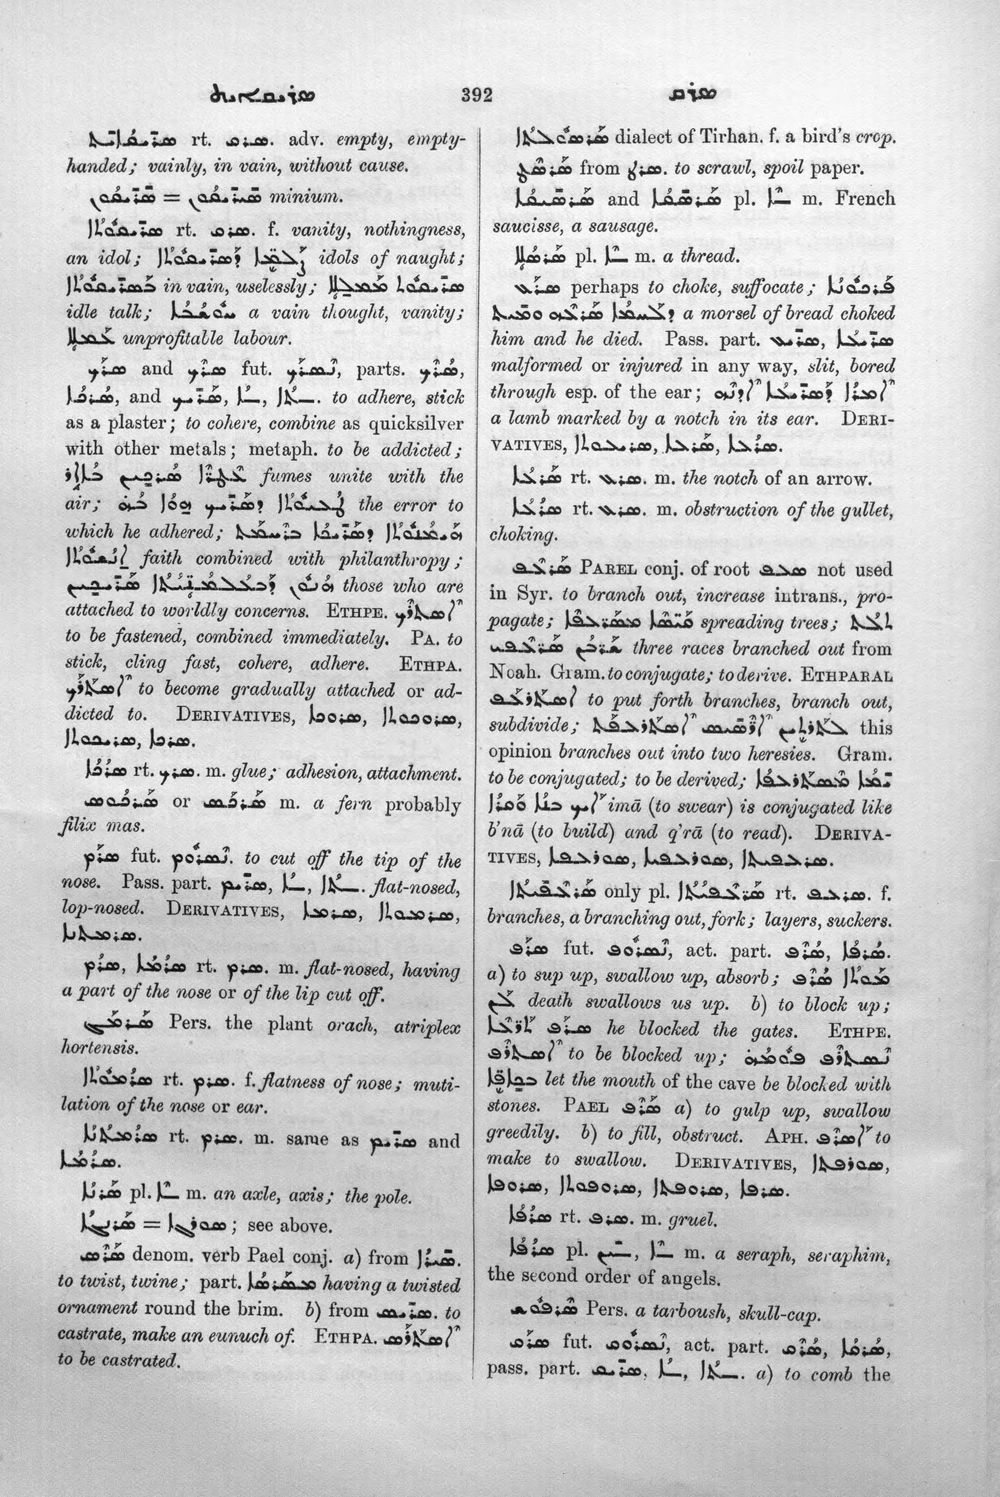 ܣܪܝܩܐܝܬ 392 ܣܪܩ
ܣܪܝܩܐܝܬ rt. ܣܪܩ. adv. empty, empty-
handed; vainly, in vain, without cause.
ܣܪܝܩܘܢ = ܣܝܪܝܩܘܢ minium.
ܣܪܝܩܘܬܐ rt. ܣܪܩ. f. vanity, nothingness,
an idol; ܨܠܡܐ ܕܣܪܝܩܘܬܐ idols of naught;
ܒܣܪܝܩܘܬܐ in vain, uselessly; ܣܪܝܩܘܬ ܡܡܠܠܐ
idle talk; ܚܘܫܒܐ a vain thought, vanity;
ܥܡܠܐ unprofitable labour.
ܣܪܟ and ܣܪܟ fut. ܢܣܪܟ, parts. ܣܪܟ,
ܣܪܟܐ, and ܣܪܝܟ, ܟܐ, ܟܬܐ. to adhere, stick
as a plaster; to cohere, combine as quicksilver
with other metals; metaph. to be addicted;
ܥܛܪܐ ܣܪܟܝܢ ܒܐܐܪ fumes unite with the
air; ܛܥܝܘܬܐ ܕܣܪܝܟ ܗܘܐ ܒܗ the error to
which he adhered; ܗܝܡܢܘܬܐ ܕܣܪܝܟܐ ܒܪܚܡܬ
ܐܢܫܘܬܐ faith combined with philanthropy;
ܗܢܘܢ ܕܒܥܠܡܢܝܬܐ ܣܪܝܟܝܢ those who are
attached to worldly concerns. ETHPE. ܐܣܬܪܟ
to be fastened, combined immediately. PA. to
stick, cling fast, cohere, adhere. ETHPA.
ܐܣܬܪܟ to become gradually attached or ad-
dicted to. DERIVATIVES, ܣܪܘܟܐ, ܣܪܘܟܘܬܐ,
ܣܪܝܟܘܬܐ, ܣܪܟܐ.
ܣܪܟܐ rt. ܣܪܟ. m. glue; adhesion, attachment.
ܣܪܟܘܣ or ܣܪܟܣ m. a fern probably
filix mas.
ܣܪܡ fut. ܢܣܪܘܡ. to cut off the tip of the
nose. Pass. part. ܣܪܝܡ, ܡܐ, ܡܬܐ. flat-nosed,
lop-nosed. DERIVATIVES, ܣܪܡܐ, ܣܪܡܘܬܐ,
ܣܪܡܬܢܐ.
ܣܪܡ, ܣܪܡܐ rt. ܣܪܡ. m. flat-nosed, having
a part of the nose or of the lip cut off.
ܣܪܡܓ Pers. the plant orach, atriplex
hortensis.
ܣܪܡܘܬܐ rt. ܣܪܡ. f. flatness of nose; muti-
lation of the nose or ear.
ܣܪܡܬܢܐ rt. ܣܪܡ. m. same as ܣܪܝܡ and
ܣܪܡܐ.
ܣܪܢܐ pl. ܢܐ m. an axle, axis; the pole.
ܣܪܢܓܐ = ܣܘܪܢܓܐ; see above.
ܣܪܣ denom. verb Pael conj. a) from ܣܝܪܐ.
to twist, twine; part. ܡܣܪܣܐ having a twisted
ornament round the brim. b) from ܣܪܝܣ. to
castrate, make an eunuch of. ETHPA. ܐܣܬܪܣ
to be castrated.
ܣܪܣܘܒܬܐ dialect of Tirhan. f. a bird's crop.
ܣܪܣܛ from ܣܪܛ. to scrawl, spoil paper.
ܣܪܣܝܩܐ and ܣܪܣܩܐ pl. ܩܐ m. French
saucisse, a sausage.
ܣܪܣܠܐ pl. ܠܐ m. a thread.
ܣܪܥ perhaps to choke, suffocate; ܦܪܟܘܢܐ
ܕܠܚܡܐ ܣܪܥܗ ܘܡܝܬ a morsel of bread choked
him and he died. Pass. part. ܣܪܝܥ, ܣܪܝܥܐ
malformed or injured in any way, slit, bored
through esp. of the ear; ܐܡܪܐ ܕܣܪܝܥܐ ܐܕܢܗ
a lamb marked by a notch in its ear. DERI-
VATIVES, ܣܪܥܐ, ܣܪܥܐ, ܣܪܝܥܘܬܐ.
ܣܪܥܐ rt. ܣܪܥ. m. the notch of an arrow.
ܣܪܥܐ rt. ܣܪܥ. m. obstruction of the gullet,
choking.
ܣܪܥܦ PAREL conj. of root ܣܥܦ not used
in Syr. to branch out, increase intrans., pro-
pagate; ܩܝܣܐ ܡܣܪܥܦܐ spreading trees; ܬܠܬ
ܫܪܒܢ ܣܪܥܦܝ three races branched out from
Noah. Gram. to conjugate; to derive. ETHPARAL
ܐܣܬܪܥܦ to put forth branches, branch out,
subdivide; ܠܬܪܬܝܢ ܐܪܣܝܣ ܐܣܬܪܥܦܬ this
opinion branches out into two heresies. Gram.
to be conjugated; to be derived; ܝܡܐ ܡܣܬܪܥܦܐ
ܐܝܟ ܒܢܐ ܘܩܪܐ imā (to swear) is conjugated like
b'nā (to build) and q'rā (to read). DERIVA-
TIVES, ܣܘܪܥܦܐ, ܣܪܥܦܬܐ.
ܣܪܥܦܬܐ only pl. ܣܪܥܦܝܬܐ rt. ܣܪܥܦ. f.
branches, a branching out, fork; layers, suckers.
ܣܪܦ fut. ܢܣܪܘܦ, act. part. ܣܪܦ, ܣܪܦܐ.
a) to sup up, swallow up, absorb; ܡܘܬܐ ܣܪܦ
ܠܢ death swallows us up. b) to block up;
ܣܪܦ ܬܪܥܐ he blocked the gates. ETHPE.
ܐܣܬܪܦ to be blocked up; ܢܣܬܪܦ ܦܘܡܗ
ܒܟܐܦܐ let the mouth of the cave be blocked with
stones. PAEL ܣܪܦ a) to gulp up, swallow
greedily. b) to fill, obstruct. APH. ܐܣܪܦ to
make to swallow. DERIVATIVES, ܣܘܪܦܬܐ,
ܣܪܘܦܐ, ܣܪܘܦܘܬܐ, ܣܪܘܦܬܐ, ܣܪܦܐ.
ܣܪܦܐ rt. ܣܪܦ. m. gruel.
ܣܪܦܐ pl. ܦܝܢ, ܦܐ m. a seraph, seraphim,
the second order of angels.
ܣܪܦܘܫ Pers. a tarboush, skull-cap.
ܣܪܩ fut. ܢܣܪܘܩ, act. part. ܣܪܩ, ܣܪܩܐ,
pass. part. ܣܪܝܩ, ܩܐ, ܩܬܐ. a) to comb the